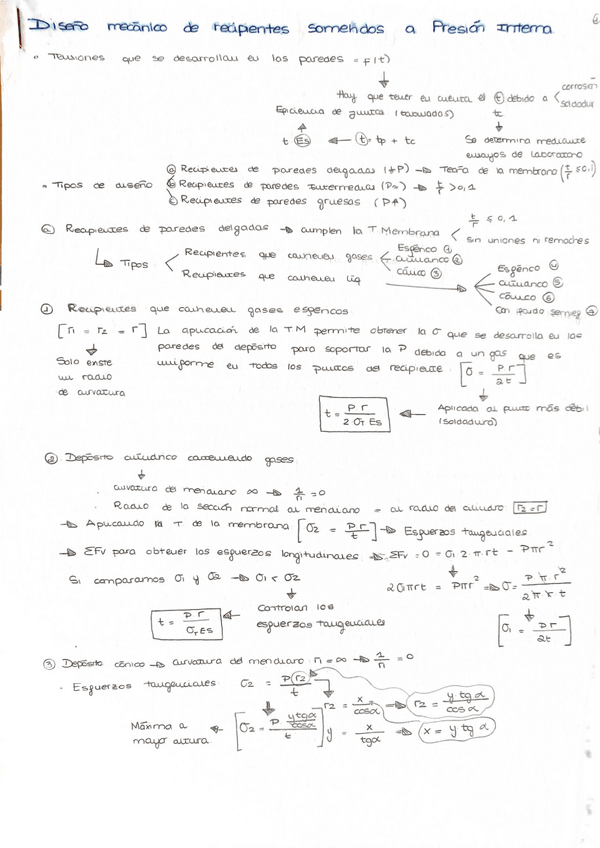 Diseño mecánico de recipientes sometidos a Presión Interna
• Tensiones que se desarrollan en las paredes = f(t)
Hay que tener en cuenta el (t) debido a < corrosión
soldadur
Eficiencia de juntas (tabulados)
tc
t (Es) ← (t) = tp + tc
Se determina mediante
ensayos de laboratorio
• Tipos de diseño
(a) Recipientes de paredes delgadas (↓P) → Teoría de la membrana (t/r ≤ 0,1)
(b) Recipientes de paredes intermedias (P≈) → t/r > 0,1
(c) Recipientes de paredes gruesas (P↑)
(a) Recipientes de paredes delgadas → cumplen la T Membrana < t/r ≤ 0,1
sin uniones ni remaches
↳ Tipos < Recipientes que contienen gases
Esférico (1)
cilíndrico (2)
cónico (3)
Recipientes que contienen liq →
Esférico (4)
cilíndrico (5)
cónico (6)
Con fondo
(1) Recipientes que contienen gases esféricos
[r1 = r2 = r] La aplicación de la TM permite obtener la σ que se desarrolla en las
paredes del depósito para soportar la P debida a un gas que es
uniforme en todos los puntos del recipiente [σ = P r / 2t]
Solo existe
un radio
de curvatura
t = P r / 2 σT Es ← Aplicada al punto más débil
(soldadura)
(2) Depósito cilíndrico conteniendo gases
· curvatura del meridiano ∞ → 1/r1 = 0
· Radio de la sección normal al meridiano = al radio del cilindro r2 = r
→ Aplicando la T de la membrana [σ2 = P r / t] → Esfuerzos tangenciales
→ ΣFv para obtener los esfuerzos longitudinales → ΣFv = 0 = σ1 2 π · rt - Pπr²
Si comparamos σ1 y σ2 → σ1 < σ2
2σ1πrt = Pπr² ⇒ σ = P π r² / 2 π r t
t = P r / σT Es ← Controlan los
esfuerzos tangenciales
[σ1 = P r / 2t]
(3) Depósito cónico → curvatura del meridiano r1 = ∞ → 1/r1 = 0
· Esfuerzos tangenciales σ2 = P (r2) / t
r2 = x / cosα ⇒ r2 = y tgα / cosα
Máxima a
mayor altura
← [σ2 = P y tgα / cosα / t]
y = x / tgα ⇒ x = y tgα